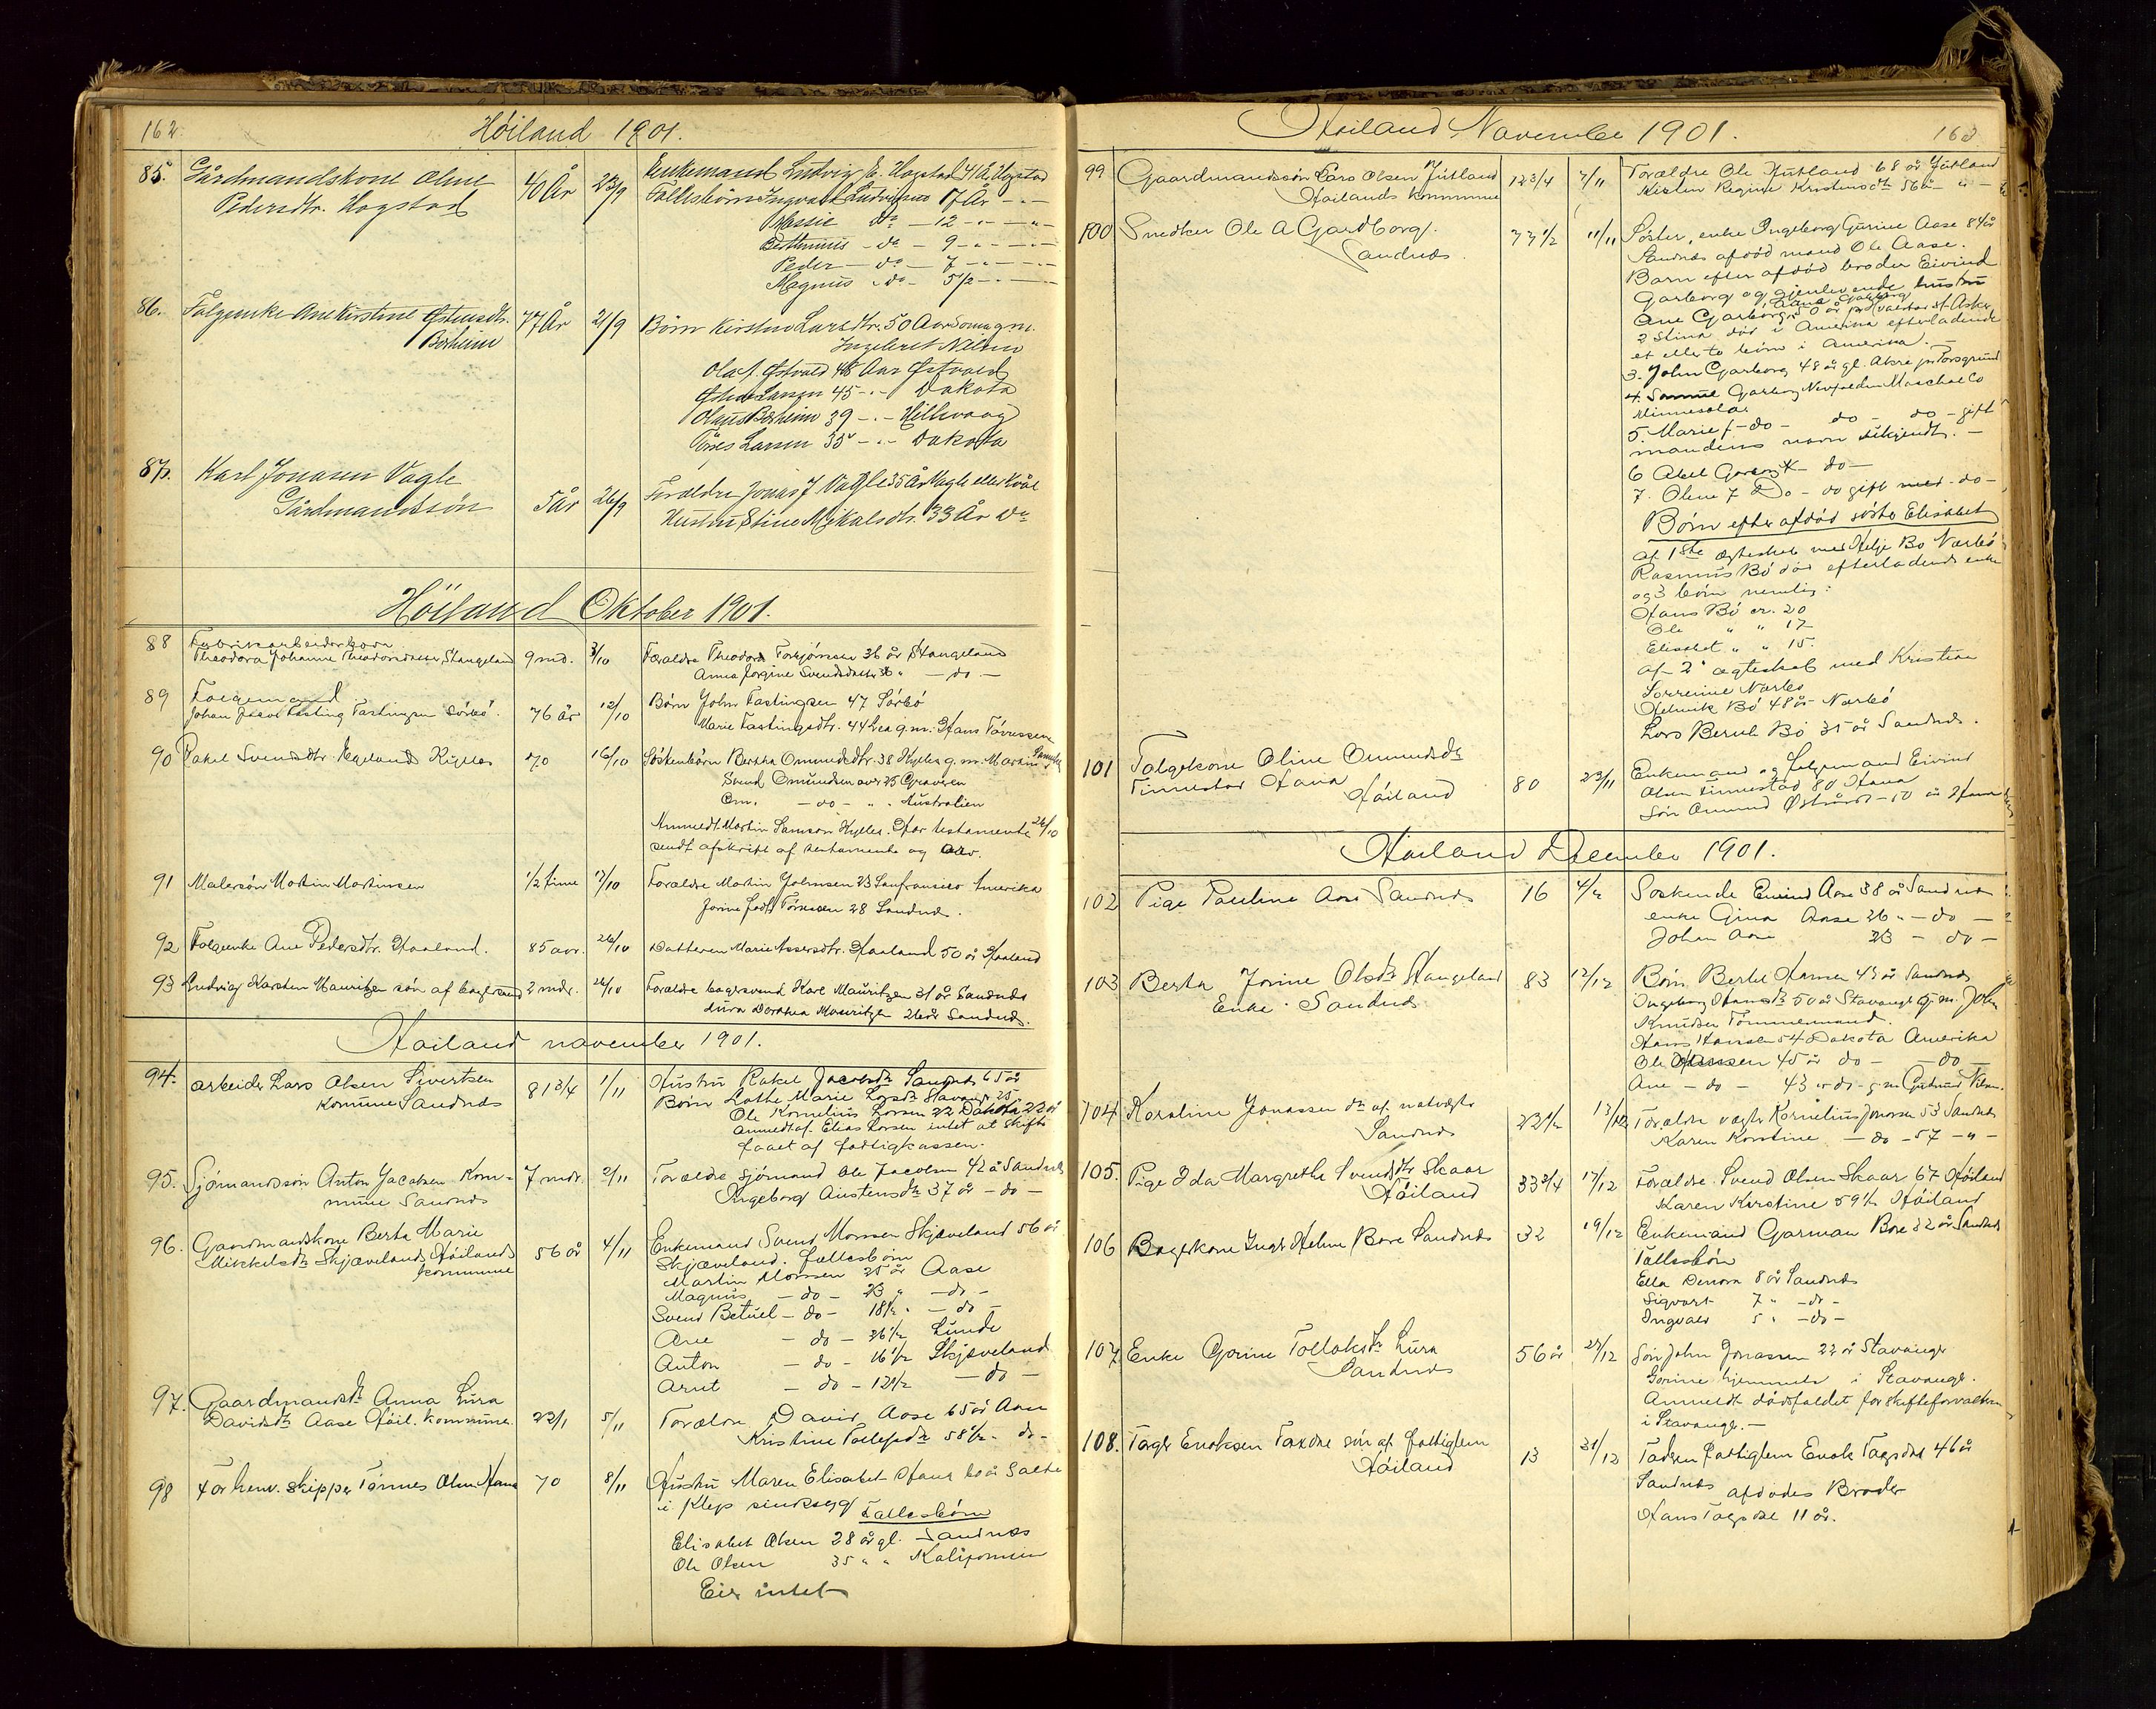 162.
Høiland 1901.
85. Gårdmandskone Oline 40 År 23/9 Enkemand Ludvig E. Hogstad 41 År Hogstad
Pedersdtr. Hogstad Fællesbørn Ingvald Ludvigsen 17 År - " -
do - 12 - " - " -
- do - 9 - " -
Peder - do - 7 - " -
Magnus - do - 5 1/2 - " -
86. Folgeenke Ane Kirstine Østensdtr. 77 År 21/9 Børn Kirsten Larsdtr. 50 Aar Soma g.m.
Berheim Ingebret Nilsen
Ola L. Østvold 48 Aar Østvold
Østen Larsen 45 - " - Dakota
Olaus Berheim 39 - " - Hillevaag
Tønes Larsen 35 - " - Dakota
87. Karl Jonasen Vagle 5 år 26/9 Forældre Jonas J Vagle 35 År Vagle eller Kvål
Gårdmandssøn Hustru Stine Mikalsdtr. 33 År do
Høiland Oktober 1901.
88 Fabrikarbeiderbarn
Theodora Johanne Theodorsdatter Stangeland 9 md. 3/10 Forældre Theodor Torbjørnsen 36 år Stangeland
Anna Jorgine Svendsdatter 36 " - do -
89 Folgemand
Johan Jesse Fasting Fastingsen Sørbø. 76 år 12/10 Børn John Fastingsen 47 Sørbø
Marie Fastingsdtr. 44 Lea g.m. Hans Tønnessen
90 Rakel Svendsdtr. Egeland Kylles 70 16/10 Søskenbørn Bertha Omundsdtr. 38 Kylles g.m. Martin Samson
Svend Omundsen over 25 Gravesen
Om. - do - " " Australien
Anmeldt Martin Samson Kylles. Har testamente 26/10
sendt afskrift af testamente og
91 Malersøn Martin Martinsen 1/2 time 17/10 Forældre Martin Johnsen 23 Sanfransisco Amerika
Jorine født Tønnesen 28 Sandnes.
92 Folgeenke Ane Pedersdtr. Haaland. 85 aar. 26/10 Datteren Marie Assersdtr. Haaland 50 år Haaland
93 Ludvig Karsten Mauritzen søn af bagersvend 2 mdr. 26/10 Forældre bagersvend Karl Mauritzen 31 år Sandnes
Dorthea Mauritzen 26 år Sandnes.
Høiland november 1901.
94. Arbeider Lars Olsen Sivertsen 81 3/4 1/11 Hustru Rakel Jacobsdtr Sandnes 65 år
komune Sandnes Børn Lotte Marie Larsdtr Stavanger 25
Ole Kornelius Larsen 22 Dakota 22 år
Anmeldt af Elias Larsen intet at skifte
faaet af fattigkassen.
95. Sjømandssøn Anton Jacobsen Kom- 7 mdr. 2/11 Forældre Sjømand Ole Jacobsen 42 år Sandnes
mune Sandnes Ingeborg Austensdtr 37 år - do -
96. Gaardmandskone Berta Marie 56 år 4/11 Enkemand Svend Monsen Skjæveland 56 år
Mikkelsdtr Skjæveland Høilands Skjæveland. Fællesbørn
kommune Martin Monsen 25 år Aase
Magnus - do - 23 " - do -
Svend Betuel - do - 18 1/2 " - do -
Ane - do - 26 1/2 Lunde
Anton - do - 16 1/2 Skjæveland
Arnt - do - 12 1/2 - do -
97. Gaardmandsdtr Anna Lura
Davidsdtr Aase Høil. kommune. 22/1 5/11 Forældre David Aase 65 år Aase
Kristine Tollefsdtr 58 1/2 - do -
98 Forhenv. skipper Tønnes Olsen Hana 70 8/11 Hustru Maren Elisabet Hana 60 år Salte
i Klep sindssyg Fællesbørn
Elisabet Olsen 28 år gl. Sandnes
Ole Olsen 35 " " Kalifornien
Eier intet
Høiland November 1901.
163
99 Gaardmandssøn Lars Olsen Jutland 12 3/4 7/11 Forældre Ole Jutland 68 år Jutland
Høilands Kommune Kirsten Regine Kristensdtr 56 år - " -
100 Snedker Ole A Gardborg. 77 1/2 11/11 Søster, enke Ingeborg Gurine Aase 84 år
Sandnes. Sandnes afdød mand Ole Aase.
Barn efter afdød broder Eivind
Garborg og gjenlevende hustru
Ane Garborg
2 Stina død i Amerika efterladende
et eller to børn i Amerika. -
3. John Garborg 48 år gl. Akre pr Porsgrund
4. Samuel Garborg Newfolden Marschal Co
Minnesota
5. Marie f - do - do - do - gift
mandens navn ukjendt. -
6 Abel Garborg - do -
7. Oline 7 Do - do gift med - do -
Børn efter afdød søster Elisabet
af 1ste ægteskab med Helje Bø Nærbø
Rasmus Bø død efterladende enke
og 3 børn nemlig:
Hans Bø cr. 20
Ole " " 17
Elisabet " " 15.
af 2' ægteskab med Kristian
Sørrenine Nærbø
Helmik Bø 48 år Nærbø
Lars Berent Bø 35 år Sandnes.
101 Folgekone Oline Omundsdtr 80 23/11 Enkemand og folgemand Eivind
Finnestad Hana Olsen Finnestad 80 Hana
Høiland Søn Omund Østråt - 50 år Hana
Høiland December 1901.
102 Pige Pauline Aase Sandnes 16 4/12 Søskende Eivind Aase 38 år Sandnes
enke Gina Aase 26 " - do -
Johan Aase 23 - do -
103 Berta Jorine Olsdtr Stangeland 83 12/12 Børn Bertel Hansen 43 år Sandnes
Enke Sandnes Ingeborg Hansdtr 50 år Stavanger g.m. John
Knudsen Tømmermand.
Hans Hansen 54 Dakota Amerika
Ole Hansen 45 år do - - do -
Ane - do - 43 " do - g.m. Gudmund Nilsen.
104 Karoline Jonassen dtr af natvægter 22 1/2 13/12 Forældre vægter Kornelius Jonassen 53 Sandnes
Sandnes Karen Kirstine - do - 57 - " -
105. Pige Ida Margrethe Svendsdtr Skaar 33 3/4 17/12 Forældre Svend Olsen Skaar 67 Høiland
Høiland Karen Kirstine 59 1/2 Høiland
106 Bagerkone Inger Helene Bore Sandnes 32 19/12 Enkemand Garman Bore 32 år Sandnes
Fællesbørn
Ella Denora 8 år Sandnes
Sigvart 7 " - do -
Ingvald 5 " - do -
107 Enke Gorine Tollaksdtr Lura 56 år 27/12 Søn John Jonassen 22 år Stavanger
Sandnes Gorine hjemmeh. i Stavanger.
Anmeldt dødsfaldet for skifteforvalteren
i Stavanger. -
108. Tage Enoksen Foxdal søn af fattiglem 13 31/12 Faderen fattiglem Enok Tagsdal 46 år
Høiland Sandnes afdødes Broder
Hans Tagsdal 11 år.